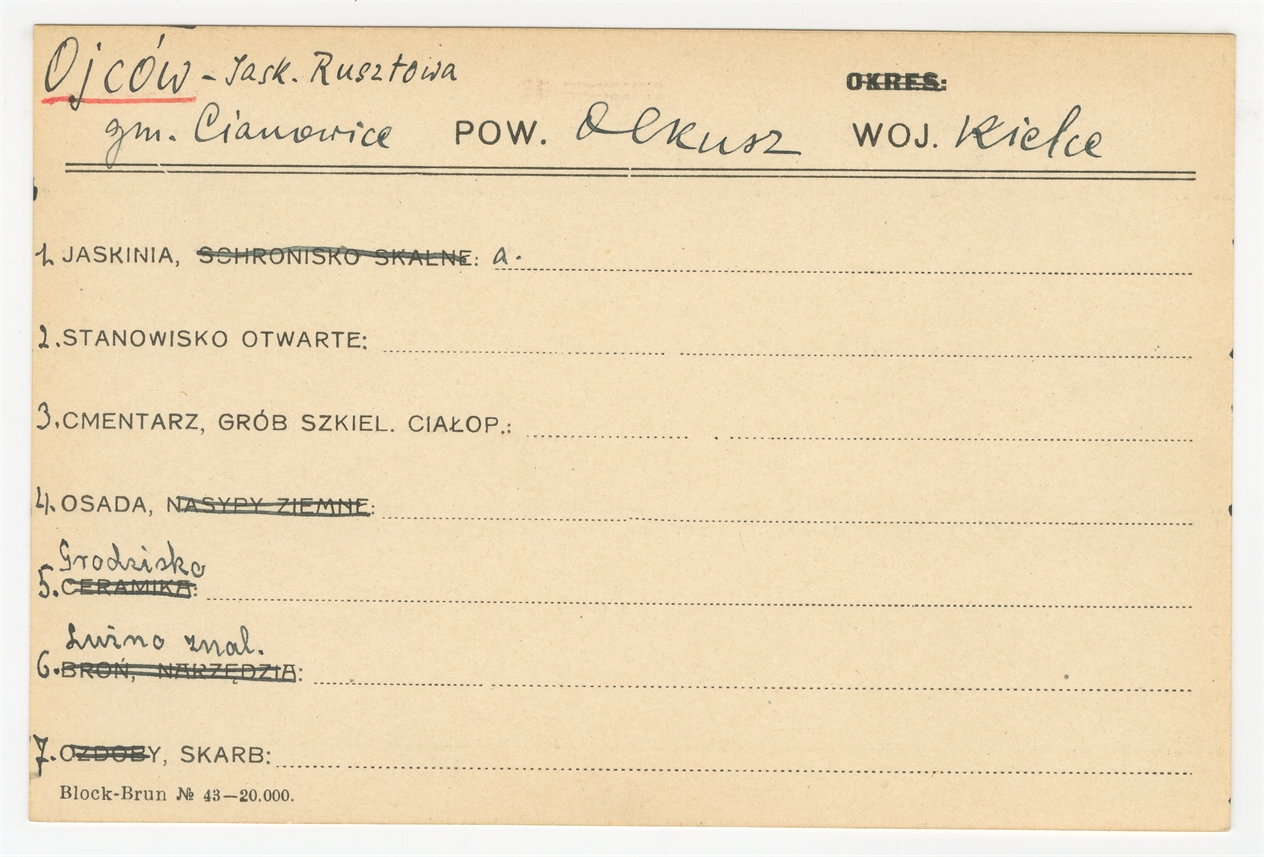 Ojców - Jask. Rusztowa
OKRES:
gm. Cianowice POW. Olkusz WOJ. Kielce
1. JASKINIA, SCHRONISKO SKALNE: a.
2. STANOWISKO OTWARTE:
3. CMENTARZ, GRÓB SZKIEL. CIAŁOP.:
4. OSADA, NASYPY ZIEMNE:
Grodzisko
5. CERAMIKA:
Luźno znal.
6. BROŃ, NARZĘDZIA:
7. OZDOBY, SKARB:
Block-Brun № 43—20.000.